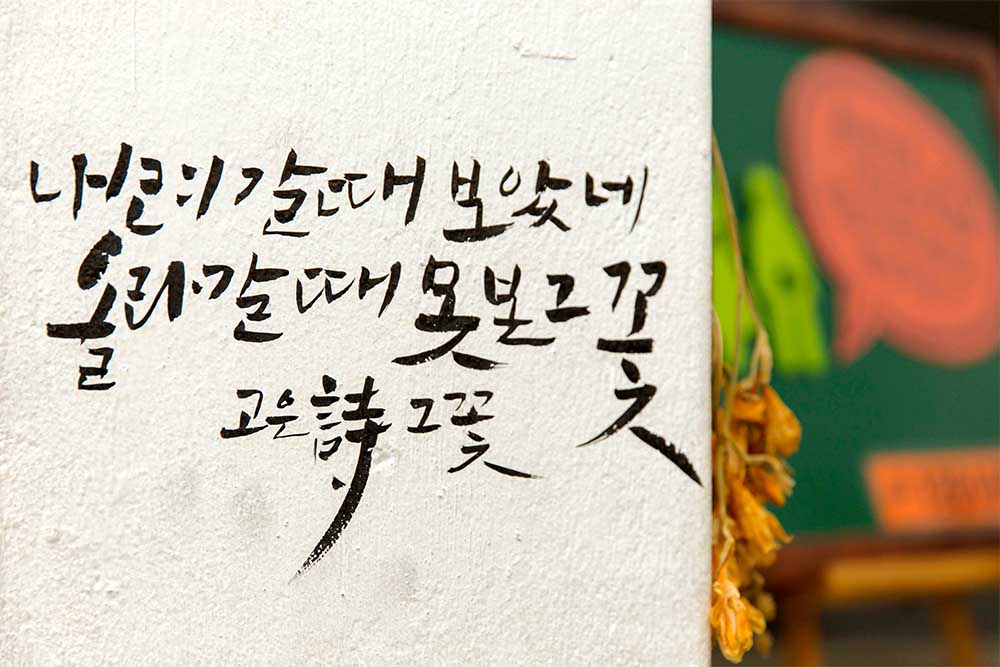 내려갈때 보았네
올라갈때 못본 그 꽃
고은 詩 그 꽃